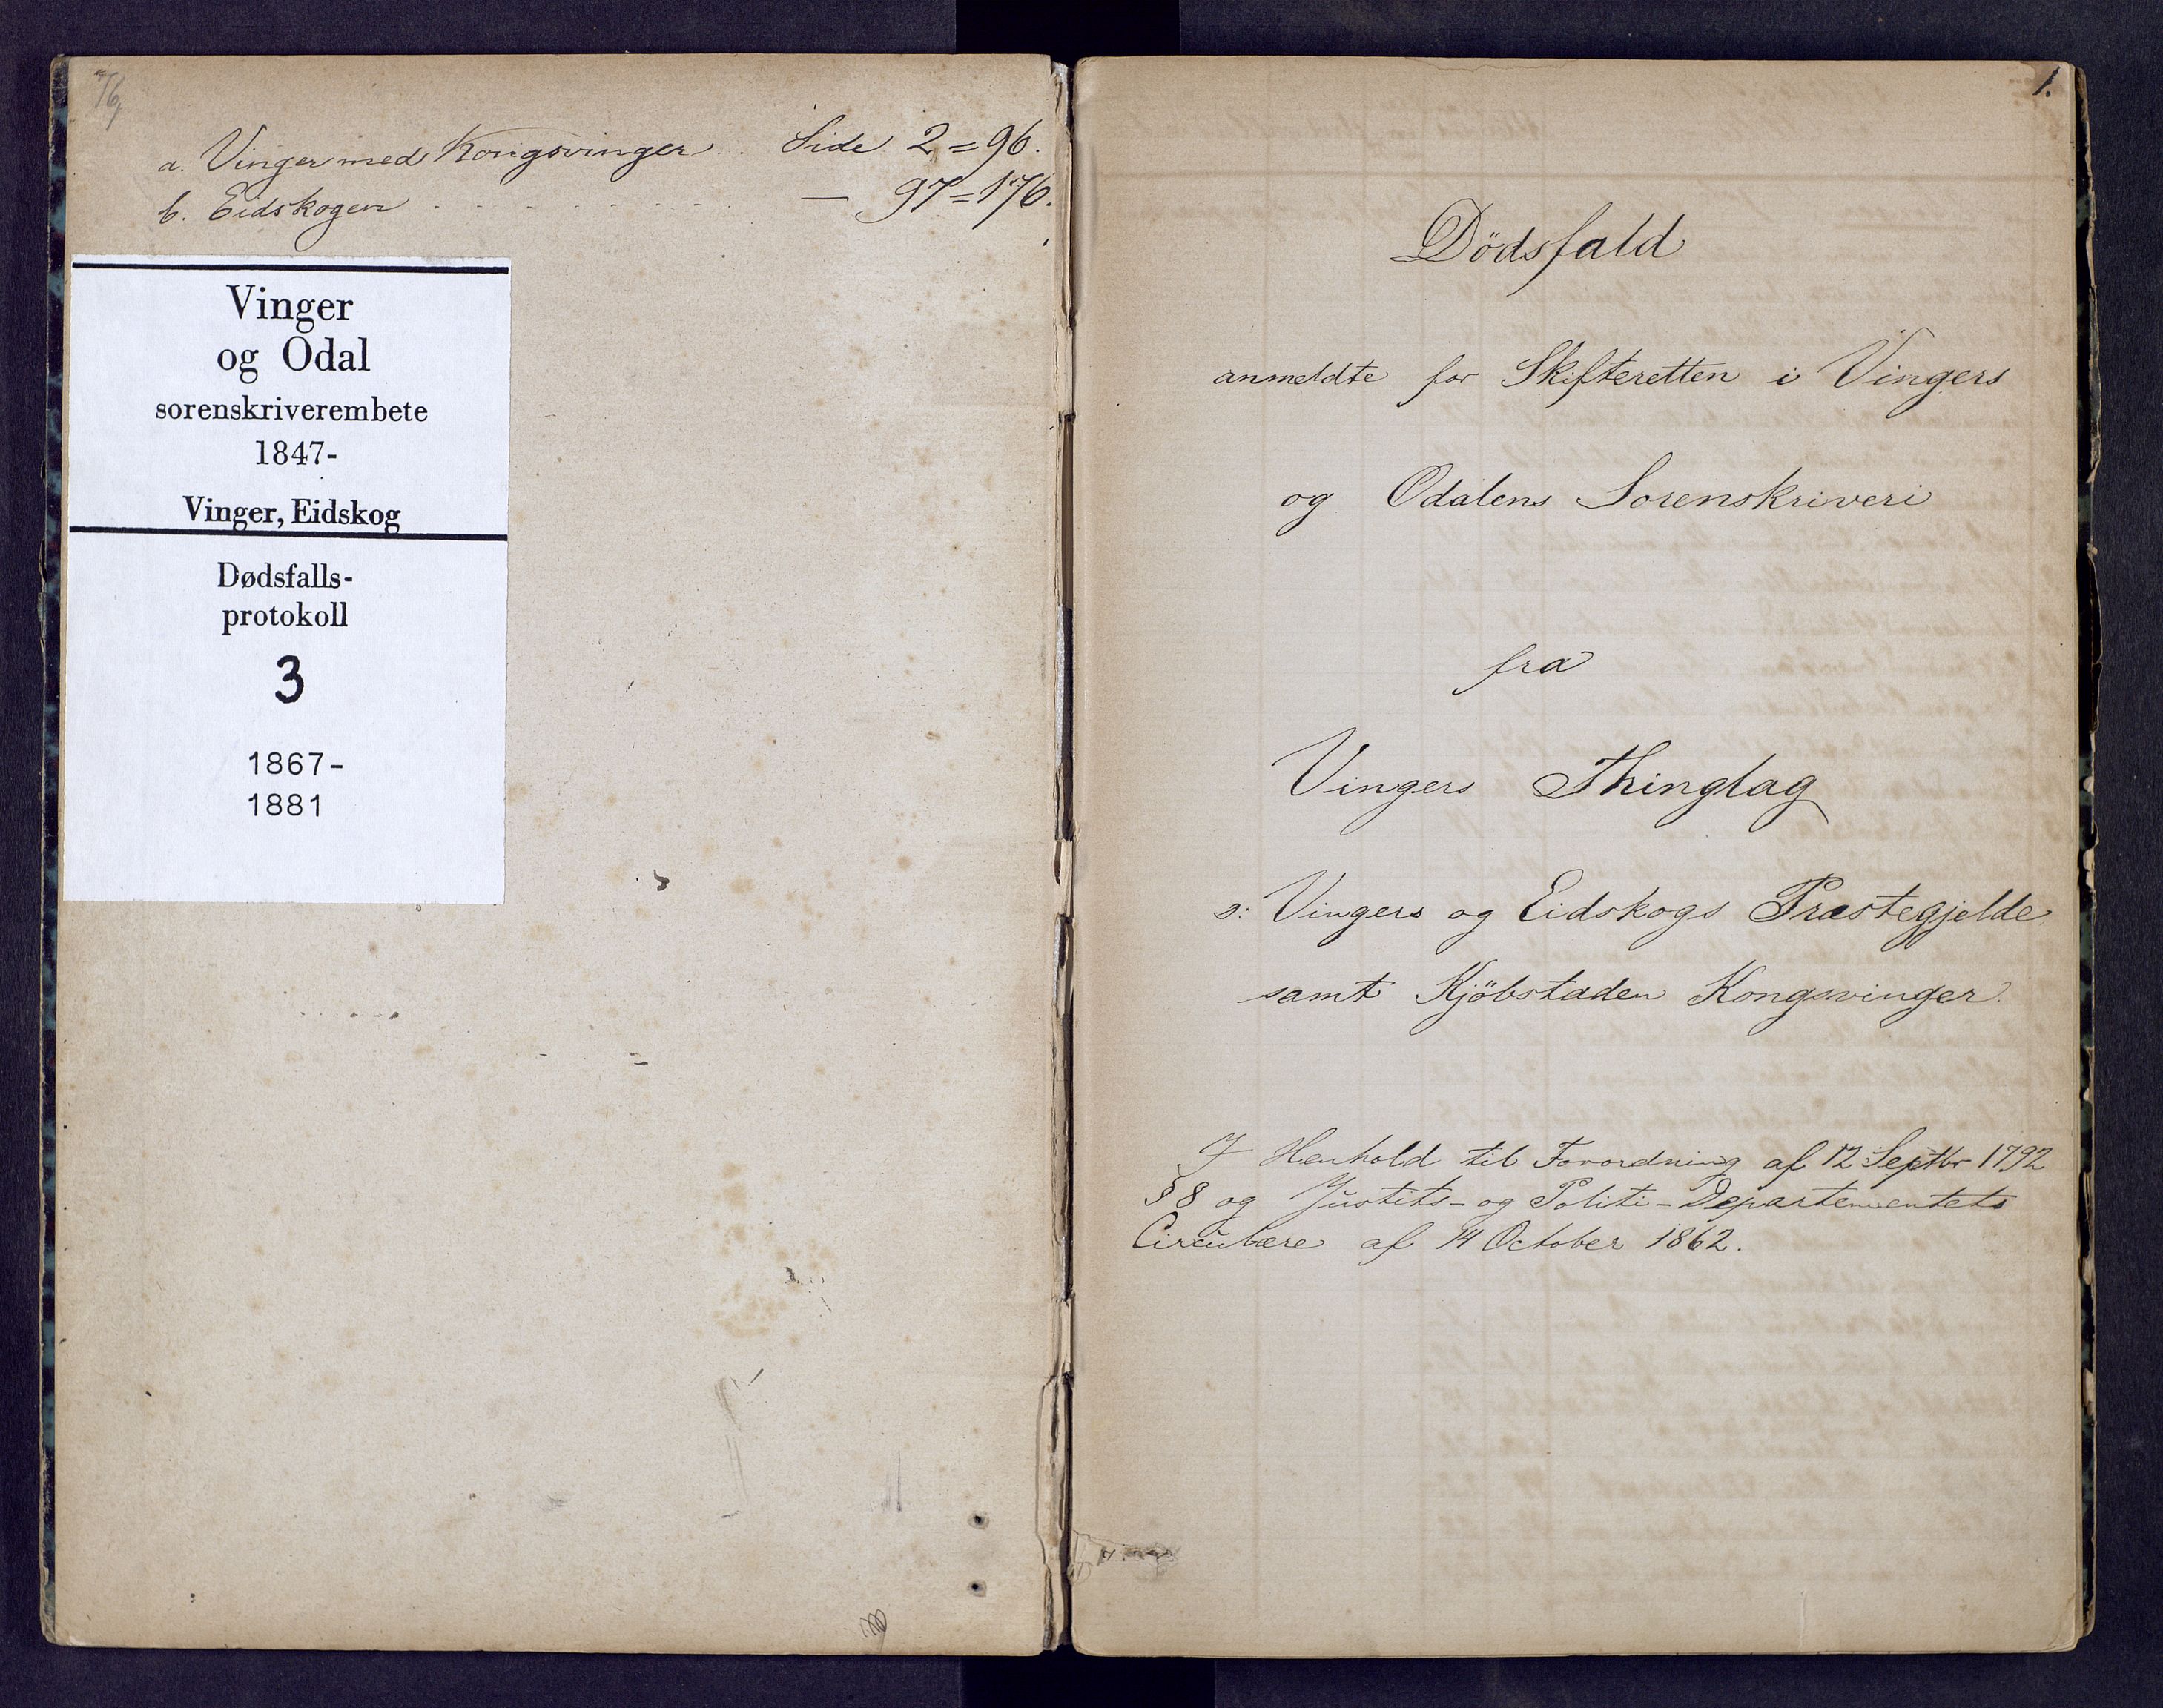 a. Vinger med Kongsvinger . . Side 2=96.
b. Eidskogen . . . . . . . . . — 97=176.
Vinger
og Odal
sorenskriverembete
1847-
Vinger, Eidskog
Dødsfalls-
protokoll
3
1867-
1881
1.
Dödsfald
anmeldte for Skifteretten i Vingers
og Odalens Sorenskriveri
fra
Vingers Thinglag
ɔ: Vingers og Eidskogs Præstegjelde
samt Kjöbstaden Kongsvinger.
I Henhold til Forordning af 12 Septbr 1792
§ 8 og Justits- og Politi-Departementets
Circulære af 14 October 1862.